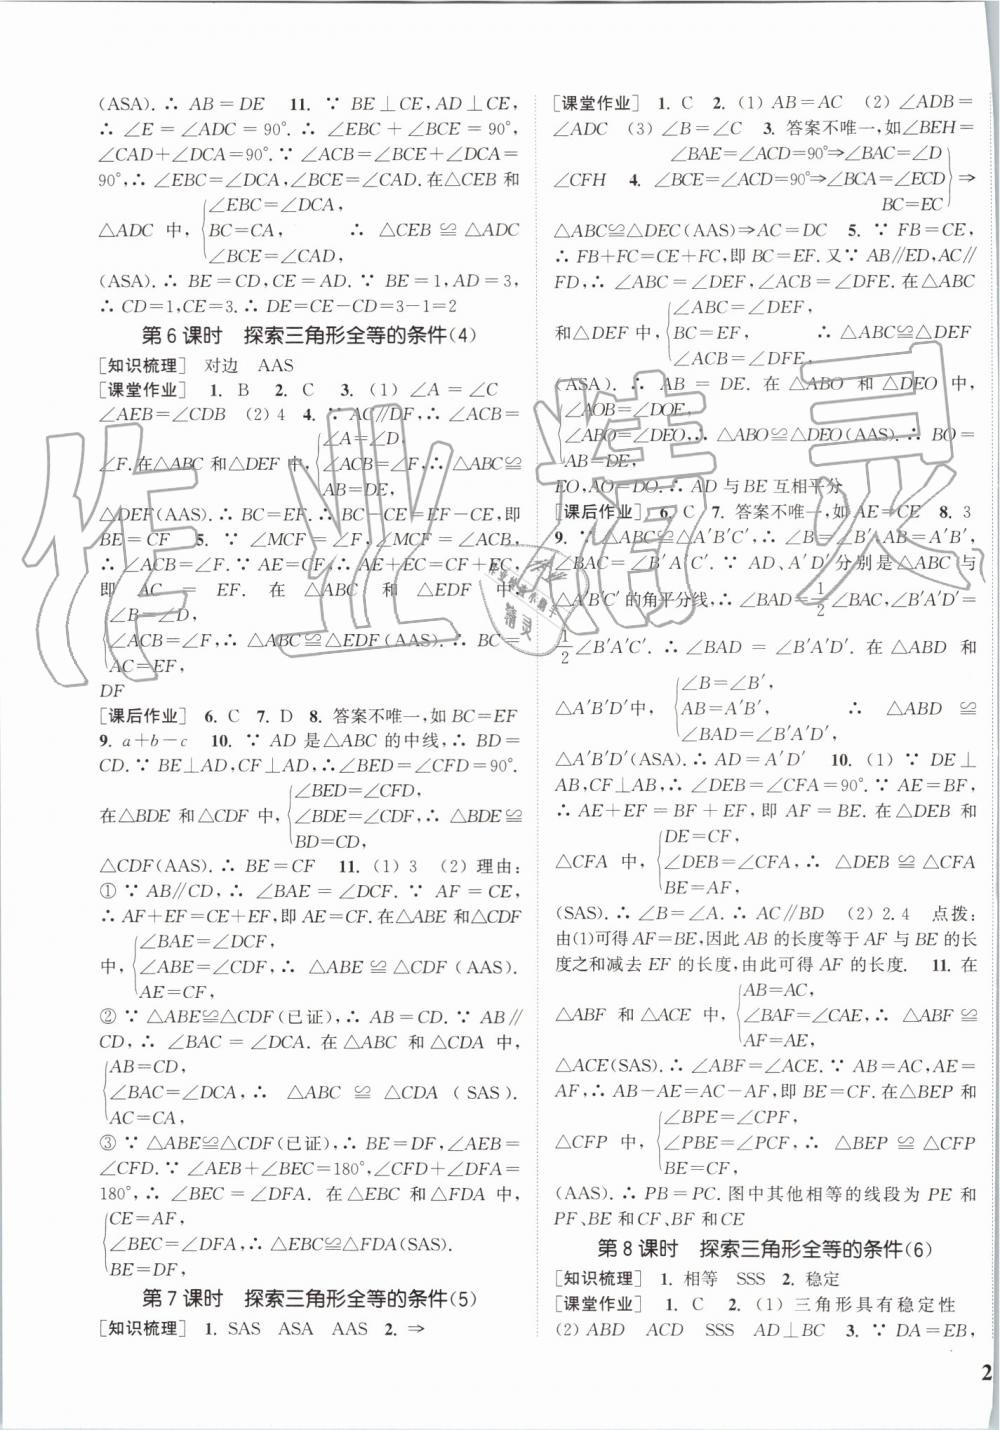 (ASA).∴ AB=DE 11. ∵ BE⊥CE,AD⊥CE,
∴ ∠E=∠ADC=90°.∴ ∠EBC+∠BCE=90°,
∠CAD+∠DCA=90°.∵ ∠ACB=∠BCE+∠DCA=
90°,∴ ∠EBC=∠DCA,∠BCE=∠CAD.在△CEB 和
∠EBC=∠DCA,
△ADC 中,{BC=CA, ∴ △CEB ≌ △ADC
∠BCE=∠CAD,
(ASA).∴ BE=CD,CE=AD.∵ BE=1,AD=3,
∴ CD=1,CE=3.∴ DE=CE-CD=3-1=2
第6课时 探索三角形全等的条件(4)
[知识梳理] 对边 AAS
[课堂作业] 1. B 2. C 3. (1) ∠A=∠C
∠AEB=∠CDB (2) 4 4. ∵ AC∥DF,∴ ∠ACB=
∠A=∠D,
∠F.在△ABC 和△DEF 中,{∠ACB=∠F,∴ △ABC≌
AB=DE,
△DEF(AAS).∴ BC=EF.∴ BC-CE=EF-CE,即
BE=CF 5. ∵ ∠MCF=∠F,∠MCF=∠ACB,
∴ ∠ACB=∠F.∵ AE=CF,∴ AE+EC=CF+EC,
即 AC=EF.在△ABC 和△EDF 中,
∠B=∠D,
{∠ACB=∠F,∴ △ABC≌△EDF(AAS).∴ BC=
AC=EF,
DF
[课后作业] 6. C 7. D 8. 答案不唯一,如 BC=EF
9. a+b-c 10. ∵ AD 是△ABC 的中线,∴ BD=
CD.∵ BE⊥AD,CF⊥AD,∴∠BED=∠CFD=90°.
∠BED=∠CFD,
在△BDE 和△CDF 中,{∠BDE=∠CDF,∴ △BDE≌
BD=CD,
△CDF(AAS).∴ BE=CF 11. (1) 3 (2) 理由:
① ∵ AB∥CD,∴ ∠BAE=∠DCF.∵ AF=CE,
∴ AF+EF=CE+EF,即 AE=CF.在△ABE 和△CDF
∠BAE=∠DCF,
中,{∠ABE=∠CDF,∴ △ABE≌△CDF(AAS).
AE=CF,
② ∵ △ABE≌△CDF(已证),∴ AB=CD.∵ AB∥
CD,∴ ∠BAC=∠DCA.在△ABC 和△CDA 中,
AB=CD,
{∠BAC=∠DCA,∴ △ABC≌△CDA(SAS).
AC=CA,
③ ∵ △ABE≌△CDF(已证),∴ BE=DF,∠AEB=
∠CFD.∵ ∠AEB+∠BEC=180°,∠CFD+∠DFA=
180°,∴ ∠BEC=∠DFA.在△EBC 和△FDA 中,
CE=AF,
{∠BEC=∠DFA,∴ △EBC≌△FDA(SAS).
BE=DF,
第7课时 探索三角形全等的条件(5)
[知识梳理] 1. SAS ASA AAS 2. ⇒
[课堂作业] 1. C 2. (1) AB=AC (2) ∠ADB=
∠ADC (3) ∠B=∠C 3. 答案不唯一,如∠BEH=
∠BAE=∠ACD=90°⇒∠BAC=∠D
∠CFH 4. ∠BCE=∠ACD=90°⇒∠BCA=∠ECD}⇒
BC=EC
△ABC≌△DEC(AAS)⇒AC=DC 5. ∵ FB=CE,
∴ FB+FC=CE+FC,即 BC=EF.又∵ AB∥ED,AC∥
FD,∴ ∠ABC=∠DEF,∠ACB=∠DFE.在△ABC
∠ABC=∠DEF,
和△DEF 中,{BC=EF, ∴ △ABC≌△DEF
∠ACB=∠DFE,
(ASA).∴ AB=DE.在△ABO 和△DEO 中,
∠AOB=∠DOE,
{∠ABO=∠DEO,∴ △ABO≌△DEO(AAS).∴ BO=
AB=DE,
EO,AO=DO.∴ AD 与 BE 互相平分
[课后作业] 6. C 7. 答案不唯一,如 AE=CE 8. 3
9. ∵ △ABC≌△A′B′C′,∴ ∠B=∠B′,AB=A′B′,
∠BAC=∠B′A′C′.∵ AD、A′D′分别是△ABC 与
△A′B′C′的角平分线,∴ ∠BAD=1/2∠BAC,∠B′A′D′=
1/2∠B′A′C′.∴ ∠BAD=∠B′A′D′.在△ABD 和
∠B=∠B′,
△A′B′D′中,{AB=A′B′, ∴ △ABD≌
∠BAD=∠B′A′D′,
△A′B′D′(ASA).∴ AD=A′D′ 10. (1) ∵ DE⊥
AB,CF⊥AB,∴ ∠DEB=∠CFA=90°.∵ AE=BF,
∴ AE+EF=BF+EF,即 AF=BE.在△DEB 和
DE=CF,
△CFA 中,{∠DEB=∠CFA,∴ △DEB≌△CFA
BE=AF,
(SAS).∴ ∠B=∠A.∴ AC∥BD (2) 2.4 点拨:
由(1)可得 AF=BE,因此 AB 的长度等于 AF 与 BE 的长
度之和减去 EF 的长度,由此可得 AF 的长度. 11. 在
AB=AC,
△ABF 和△ACE 中,{∠BAF=∠CAE,∴ △ABF≌
AF=AE,
△ACE(SAS).∴ ∠ABF=∠ACE.∵ AB=AC,AE=
AF,∴ AB-AE=AC-AF,即 BE=CF.在△BEP 和
∠BPE=∠CPF,
△CFP 中,{∠PBE=∠PCF,∴ △BEP≌△CFP
BE=CF,
(AAS).∴ PB=PC.图中其他相等的线段为 PE 和
PF、BE 和 CF、BF 和 CE
第8课时 探索三角形全等的条件(6)
[知识梳理] 1. 相等 SSS 2. 稳定
[课堂作业] 1. C 2. (1) 三角形具有稳定性
(2) ABD ACD SSS AD⊥BC 3. ∵ DA=EB,
2
作业精灵
精灵